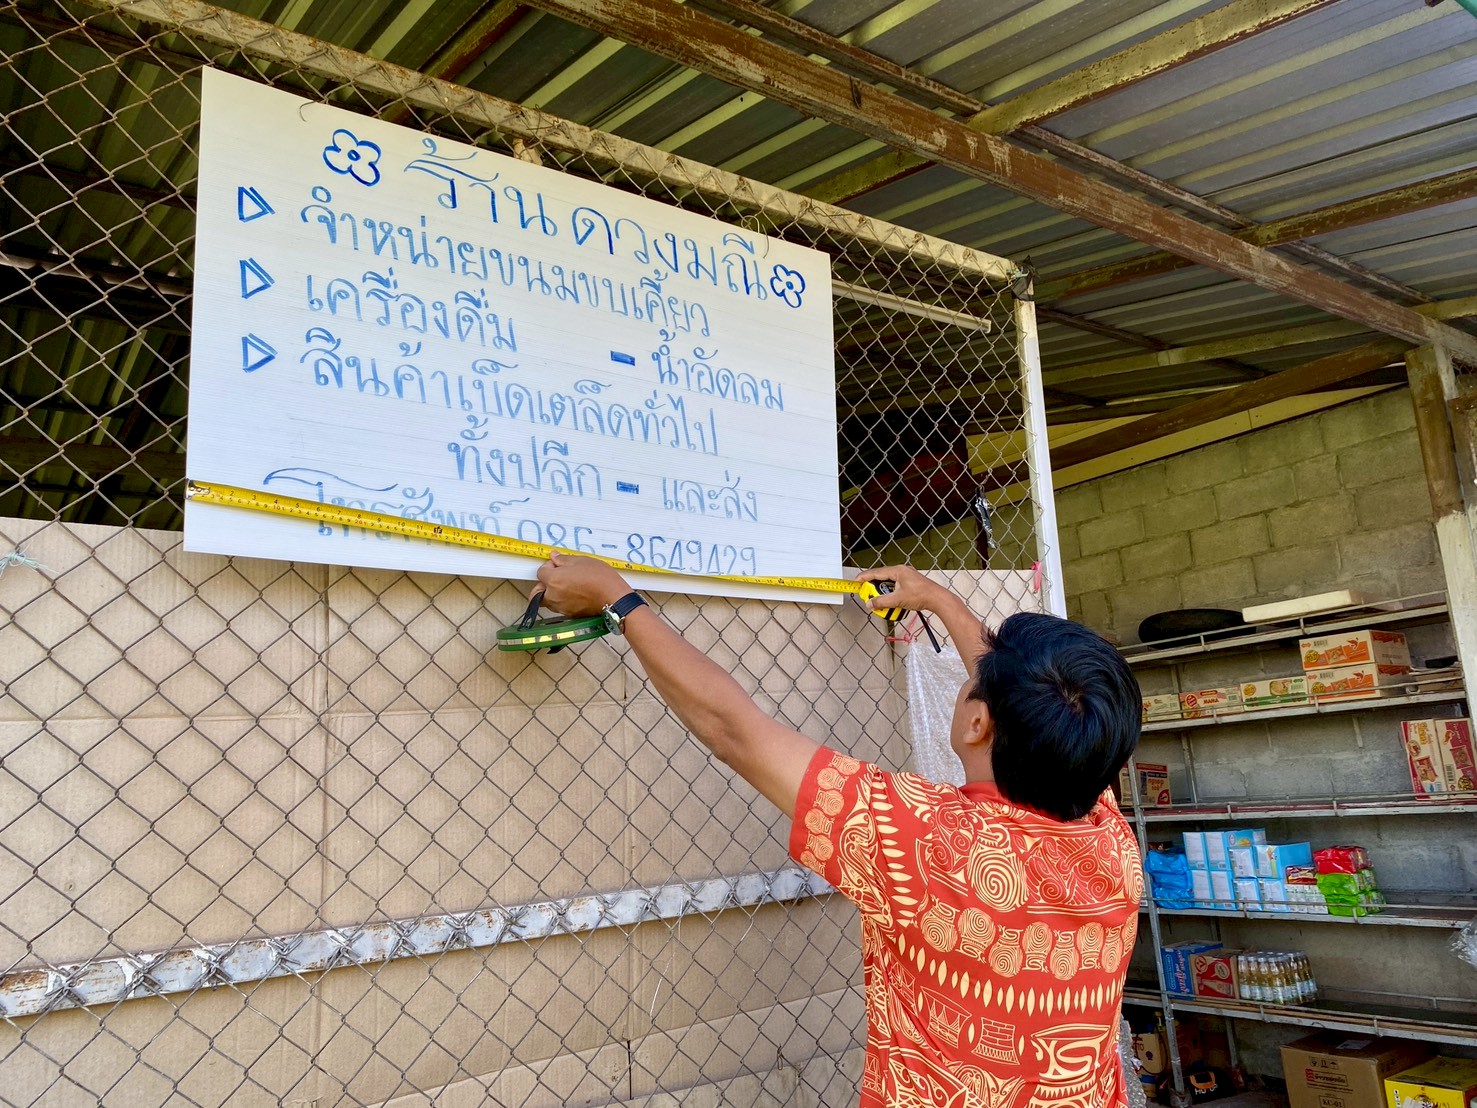 ร้าน ดวงมณี
จำหน่ายขนมขบเคี้ยว
เครื่องดื่ม - น้ำอัดลม
สินค้าเบ็ดเตล็ดทั่วไป
ทั้งปลีก - และส่ง
โทรศัพท์ 086-8649429